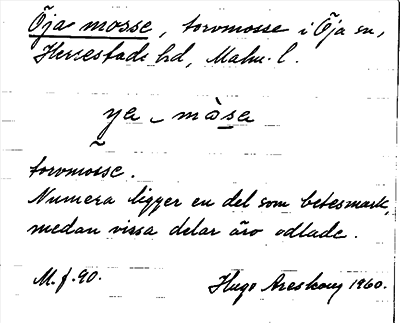 Öja mosse, torvmosse i Öja sn,
Herrestads hd, Malm. l.
ya - mòsa
torvmosse.
Numera ligger en del som betesmark,
medan vissa delar äro odlade.
M. f. 90. Hugo Areskoug 1960.